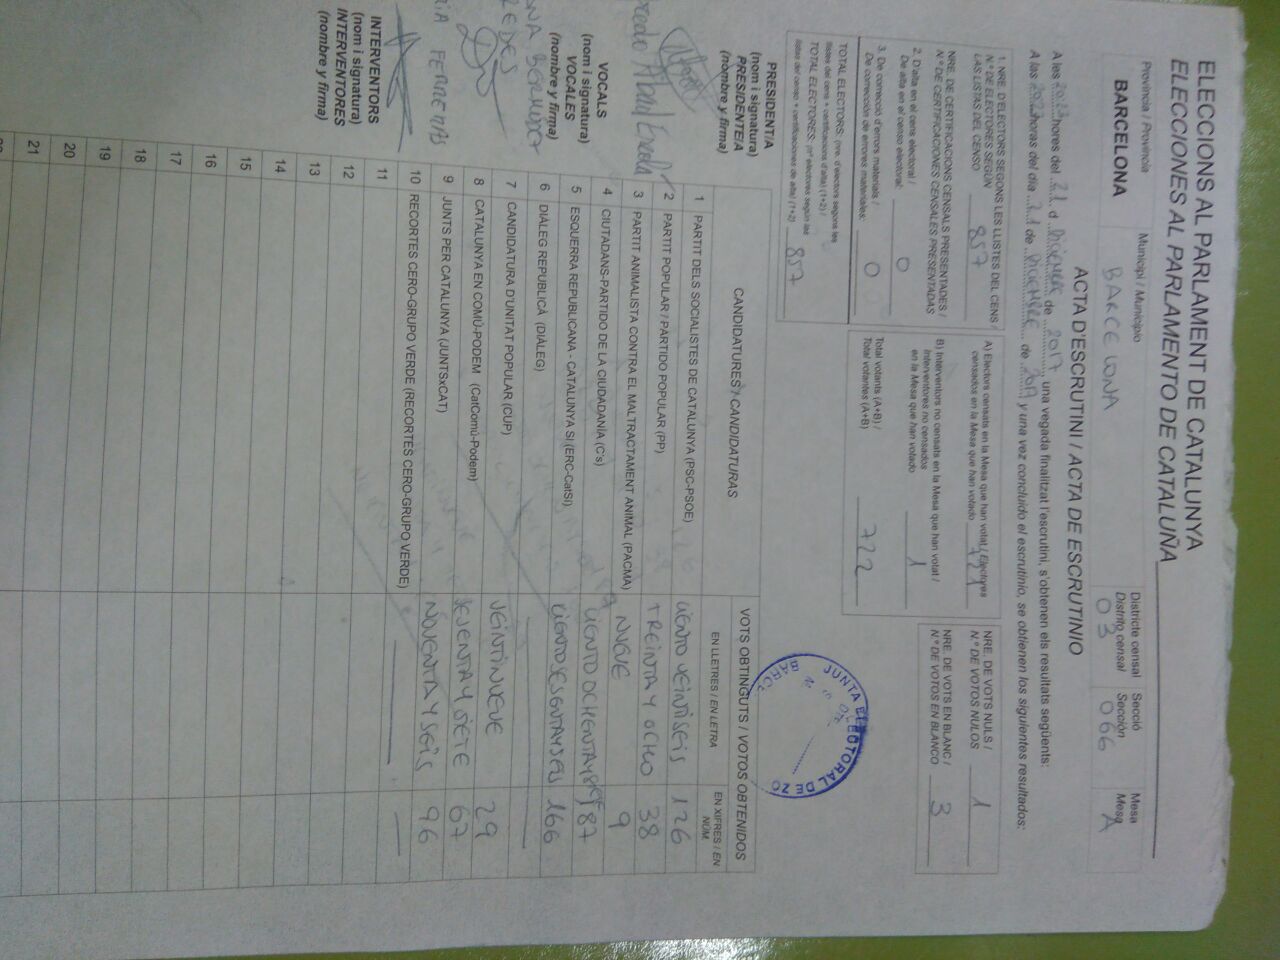 ELECCIONS AL PARLAMENT DE CATALUNYA
ELECCIONES AL PARLAMENTO DE CATALUÑA
Província / Provincia
BARCELONA
Municipi / Municipio
BARCELONA
Districte censal
Distrito censal
03
Secció
Sección
066
Mesa
Mesa
A
ACTA D'ESCRUTINI / ACTA DE ESCRUTINIO
A les hores del 21 d de 2017, una vegada finalitzat l'escrutini, s'obtenen els resultats següents:
A las horas del día 21 de de 2017 y una vez concluido el escrutinio, se obtienen los siguientes resultados:
1. NRE. D'ELECTORS SEGONS LES LLISTES DEL CENS /
N.º DE ELECTORES SEGÚN
LAS LISTAS DEL CENSO 857
NRE. DE CERTIFICACIONS CENSALS PRESENTADES /
N.º DE CERTIFICACIONES CENSALES PRESENTADAS
2. D'alta en el cens electoral /
De alta en el censo electoral: 0
3. De correcció d'errors materials /
De corrección de errores materiales: 0
TOTAL ELECTORS: (nre. d'electors segons les
llistes del cens + certificacions d'alta) (1+2) /
TOTAL ELECTORES: (nº electores según las
listas del censo + certificaciones de alta) (1+2) 857
A) Electors censats en la Mesa que han votat / Electores
censados en la Mesa que han votado 721
B) Interventors no censats en la Mesa que han votat /
Interventores no censados
en la Mesa que han votado 1
Total votants (A+B) /
Total votantes (A+B) 722
NRE. DE VOTS NULS /
N.º DE VOTOS NULOS 1
NRE. DE VOTS EN BLANC /
N.º DE VOTOS EN BLANCO 3
JUNTA ELECTORAL DE ZO
BARC
PRESIDENT/A
(nom i signatura)
PRESIDENTE/A
(nombre y firma)
VOCALS
(nom i signatura)
VOCALES
(nombre y firma)
INTERVENTORS
(nom i signatura)
INTERVENTORES
(nombre y firma)
CANDIDATURES / CANDIDATURAS
VOTS OBTINGUTS / VOTOS OBTENIDOS
EN LLETRES / EN LETRA
EN XIFRES / EN NÚM.
1 PARTIT DELS SOCIALISTES DE CATALUNYA (PSC-PSOE) CIENTO VEINTISEIS 126
2 PARTIT POPULAR / PARTIDO POPULAR (PP) TREINTA Y OCHO 38
3 PARTIT ANIMALISTA CONTRA EL MALTRACTAMENT ANIMAL (PACMA) NUEVE 9
4 CIUTADANS-PARTIDO DE LA CIUDADANÍA (C's) CIENTO OCHENTA Y SIETE 187
5 ESQUERRA REPUBLICANA - CATALUNYA SÍ (ERC-CatSÍ) CIENTO SESENTA Y SEIS 166
6 DIÀLEG REPUBLICÀ (DIÀLEG)
7 CANDIDATURA D'UNITAT POPULAR (CUP) VEINTINUEVE 29
8 CATALUNYA EN COMÚ-PODEM (CatComú-Podem) SESENTA Y SIETE 67
9 JUNTS PER CATALUNYA (JUNTSxCAT) NOVENTA Y SEIS 96
10 RECORTES CERO-GRUPO VERDE (RECORTES CERO-GRUPO VERDE)
11
12
13
14
15
16
17
18
19
20
21
22